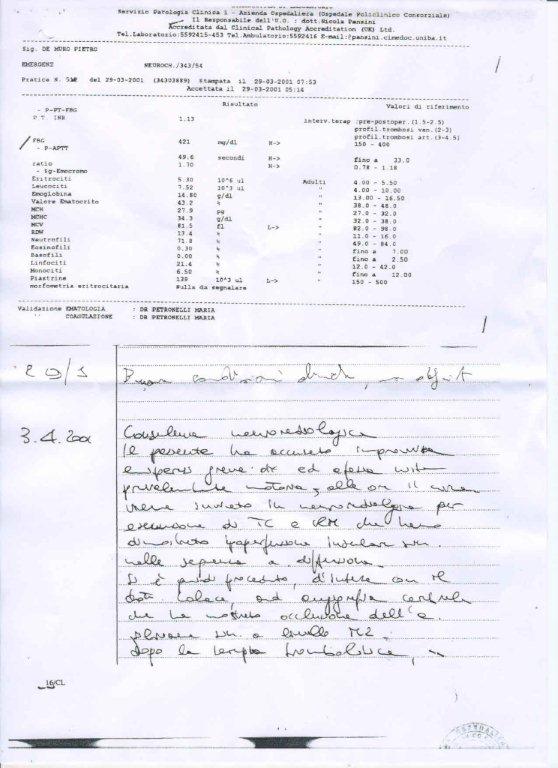 Servizio Patologia Clinica 1 - Azienda Ospedaliera (Ospedale Policlinico Consorziale)
Il Responsabile dell'U.O. : dott.Nicola Pansini
Accreditata dal Clinical Pathology Accreditation (UK) Ltd.
Tel.Laboratorio:5592415-453 Tel.Ambulatorio:5592416 E-mail:pansini.cimedoc.uniba.it
Sig. DE MURO PIETRO
EMERGENT NEUROCH./343/54
Pratica N. del 29-03-2001 (34303889) Stampata il 29-03-2001 07:53
Accettata il 29-03-2001 05:14
Risultato Valori di riferimento
- P-PT-FBG
P.T. INR 1.13 Interv.terap :pre-postoper.(1.5-2.5)
profil.trombosi ven.(2-3)
profil.trombosi art.(3-4.5)
FBG 421 mg/dl H-> 150 - 400
- P-APTT
49.6 secondi H-> fino a 33.0
ratio 1.70 H-> 0.78 - 1.18
- Sg-Emocromo
Eritrociti 5.30 10^6 ul Adulti 4.00 - 5.50
Leucociti 7.52 10^3 ul " 4.00 - 10.00
Emoglobina 14.80 g/dl " 13.00 - 16.50
Valore Ematocrito 43.2 % " 38.0 - 48.0
MCH 27.9 pg " 27.0 - 32.0
MCHC 34.3 g/dl " 32.0 - 38.0
MCV 81.5 fl L-> " 82.0 - 98.0
RDW 13.4 % " 11.0 - 16.0
Neutrofili 71.8 % " 49.0 - 84.0
Eosinofili 0.30 % " fino a 7.00
Basofili 0.00 % " fino a 2.50
Linfociti 21.4 % " 12.0 - 42.0
Monociti 6.50 % " fino a 12.00
Piastrine 139 10^3 ul L-> " 150 - 500
morfometria eritrocitaria Nulla da segnalare
Validazione EMATOLOGIA : DR PETRONELLI MARIA
" COAGULAZIONE : DR PETRONELLI MARIA
Buone condizioni
3.4.2001 Consulenza neuroradiologica
Il paziente ha accusato improvvisa
emiparesi ed afasia
prevalentemente motoria, alle ore
viene in neuroradiologia per
esecuzione di TC e RM che hanno
dimostrato ipoperfusione insulare sin.
nelle sequenze a diffusione.
Si è proceduto, d'intesa con il
dott. ad angiografia cerebrale
che ha mostrato occlusione dell'a.
silviana sin. a livello M2.
dopo la terapia trombolitica,
16/CL